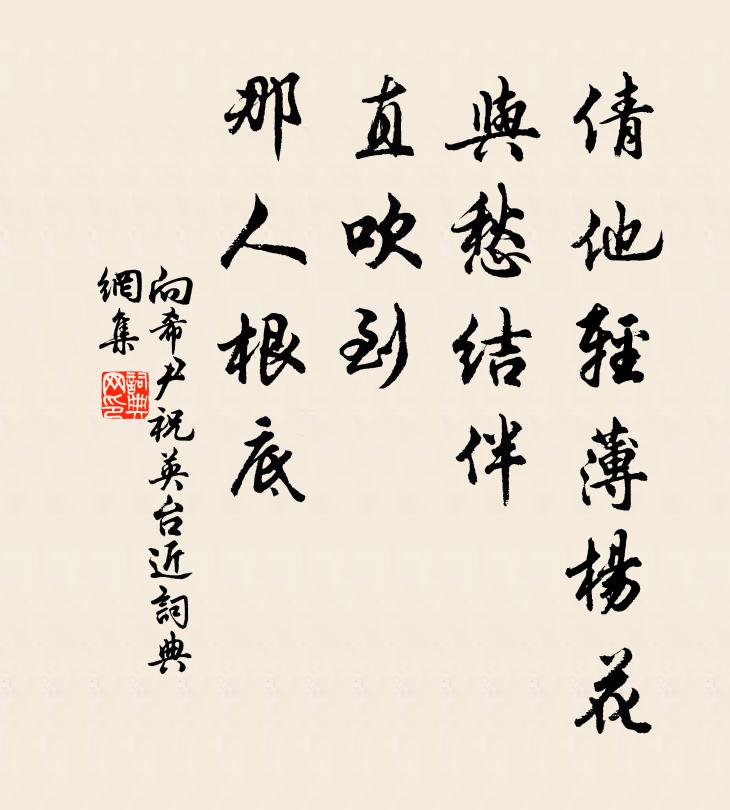 倩他輕薄楊花
與愁結伴
直吹到
那人根底
向希尹祝英台近詞典
網集
詞典
网印